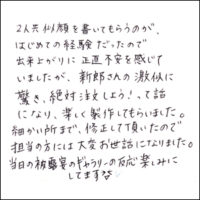 2人共似顔を書いてもらうのが、
はじめての経験だったので
出来上がりに正直不安を感じて
いましたが、新郎さんの激似に
驚き、絶対注文しよう!って話
になり、楽しく製作してもらいました。
細かい所まで、修正して頂いたので
担当の方には大変お世話になりました。
当日の披露宴のギャラリーの反応楽しみに
してます